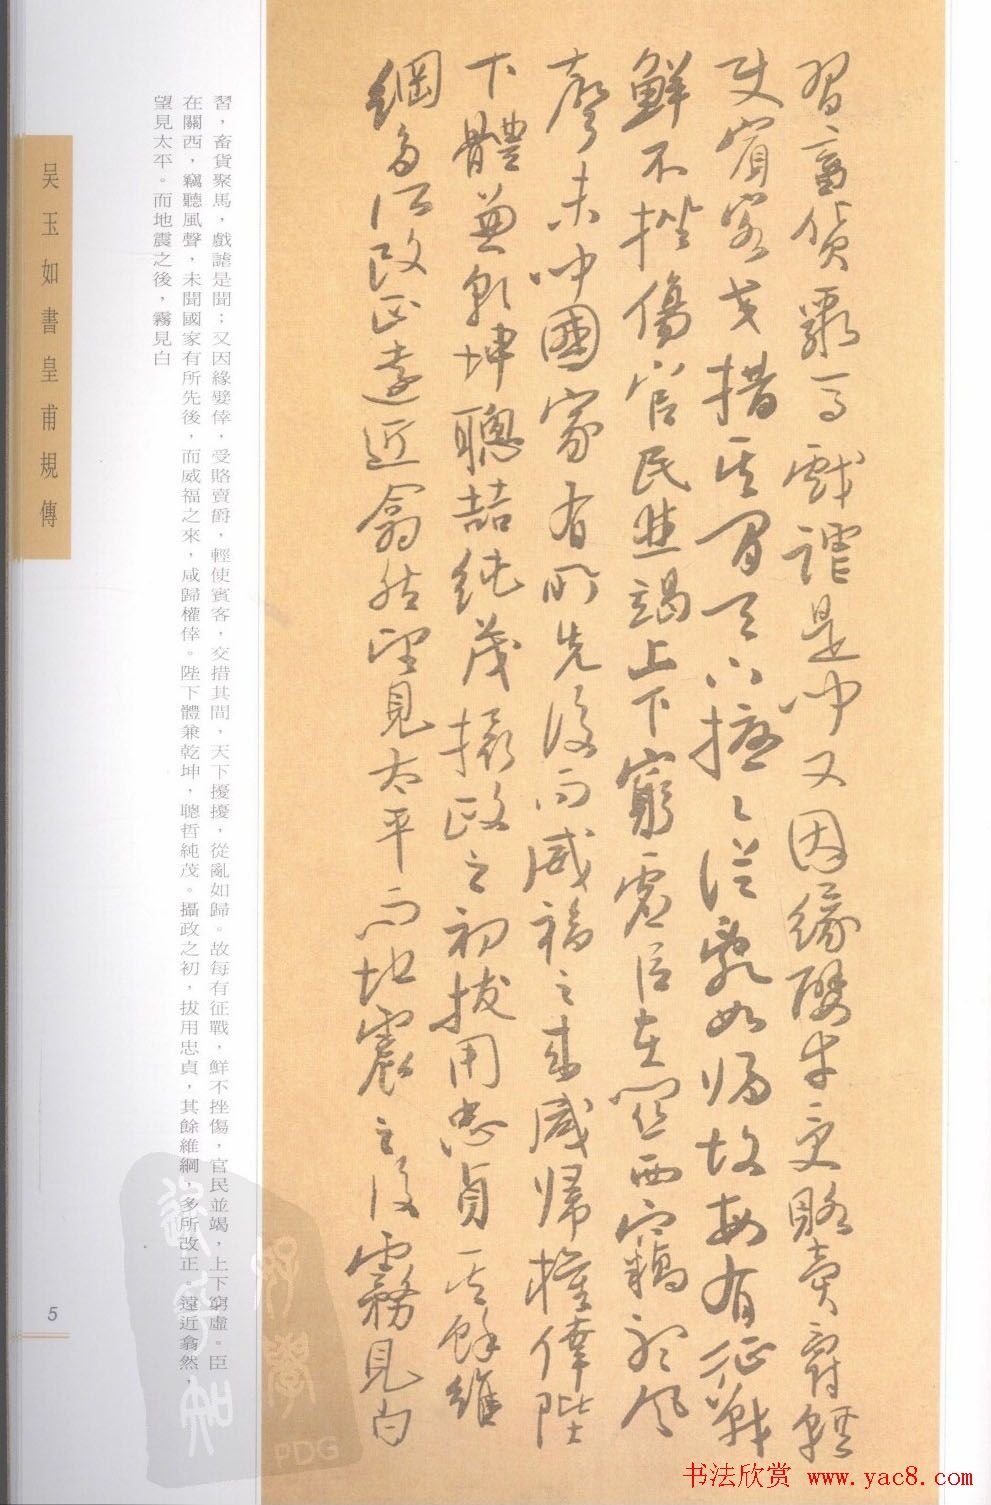 習畜貨聚馬戲謔是聞又因緣嬖倖受賂賣爵輕
使賓客交措其間天下擾々從亂如歸故每有征戰
鮮不挫傷官民並竭上下窮虛臣在關西竊聽風
聲未聞國家有所先後而威福之來咸歸權倖陛
下體兼乾坤聰喆純茂攝政之初拔用忠貞其餘維
綱多所改正遠近翕然望見太平而地震之後霧見白
習，畜貨聚馬，戲謔是聞；又因緣嬖倖，受賂賣爵，輕使賓客，交措其間，天下擾擾，從亂如歸。故每有征戰，鮮不挫傷，官民並竭，上下窮虛。臣
在關西，竊聽風聲，未聞國家有所先後，而威福之來，咸歸權倖。陛下體兼乾坤，聰哲純茂。攝政之初，拔用忠貞，其餘維綱，多所改正，遠近翕然，
望見太平。而地震之後，霧見白
吴玉如書皇甫規傳
5
PDG
书法欣赏 www.yac8.com